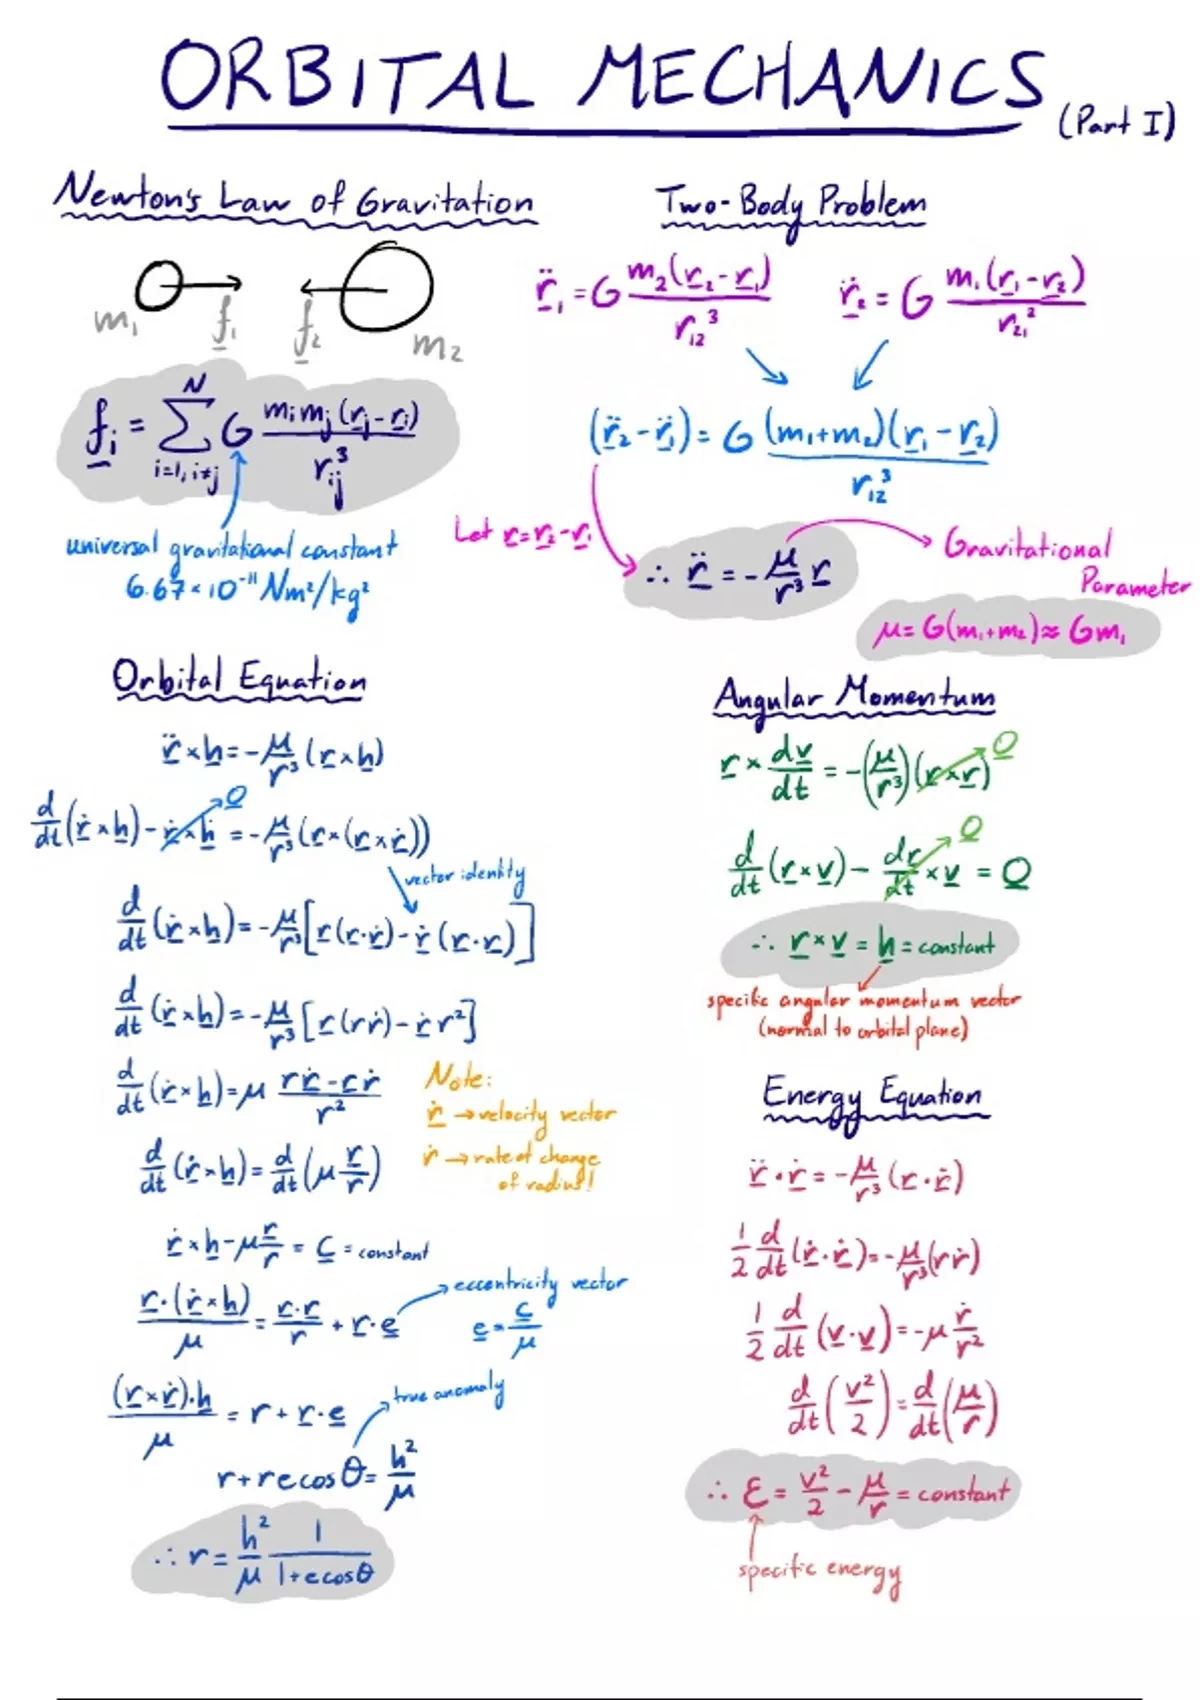 ORBITAL MECHANICS (Part I)
Newton's Law of Gravitation
m₁ f̲₁ f̲₂ m₂
f̲ᵢ = Σ^N_{i=1, i≠j} G mᵢmⱼ(r̲ⱼ - r̲ᵢ) / rᵢⱼ³
universal gravitational constant
6.67×10⁻¹¹ Nm²/kg²
Two-Body Problem
r̲̈₁ = G m₂(r̲₂ - r̲₁) / r₁₂³
r̲̈₂ = G m₁(r̲₁ - r̲₂) / r₂₁²
(r̲̈₂ - r̲̈₁) = G (m₁+m₂)(r̲₁ - r̲₂) / r₁₂³
Let r̲ = r̲₂ - r̲₁
∴ r̲̈ = - μ/r³ r̲
Gravitational
Parameter
μ = G(m₁+m₂) ≈ Gm₁
Orbital Equation
r̲̈ × h̲ = - μ/r³ (r̲ × h̲)
d/dt (ṙ̲ × h̲) - ṙ̲ × ḣ̲ = - μ/r³ (r̲ × (r̲ × ṙ̲))
0̲
vector identity
d/dt (ṙ̲ × h̲) = - μ/r³ [r̲(r̲·ṙ̲) - ṙ̲(r̲·r̲)]
d/dt (ṙ̲ × h̲) = - μ/r³ [r̲(rṙ) - ṙ̲ r²]
d/dt (ṙ̲ × h̲) = μ (r ṙ̲ - r̲ ṙ) / r²
d/dt (ṙ̲ × h̲) = d/dt (μ r̲/r)
Note:
ṙ̲ → velocity vector
ṙ → rate of change
of radius!
ṙ̲ × h̲ - μ r̲/r = c̲ = constant
r̲·(ṙ̲ × h̲) / μ = r̲·r̲ / r + r̲·e̲
eccentricity vector
e̲ = c̲/μ
(r̲ × ṙ̲)·h̲ / μ = r + r̲·e̲
true anomaly
r + r e cos θ = h²/μ
∴ r = h²/μ 1/(1+e cos θ)
Angular Momentum
r̲ × dv̲/dt = -(μ/r³)(r̲ × r̲)
0̲
d/dt (r̲ × v̲) - dr̲/dt × v̲ = 0̲
0̲
∴ r̲ × v̲ = h̲ = constant
specific angular momentum vector
(normal to orbital plane)
Energy Equation
r̲̈ · ṙ̲ = - μ/r³ (r̲ · ṙ̲)
1/2 d/dt (ṙ̲ · ṙ̲) = - μ/r³ (rṙ)
1/2 d/dt (v̲ · v̲) = - μ ṙ/r²
d/dt (v²/2) = d/dt (μ/r)
∴ ε = v²/2 - μ/r = constant
specific energy